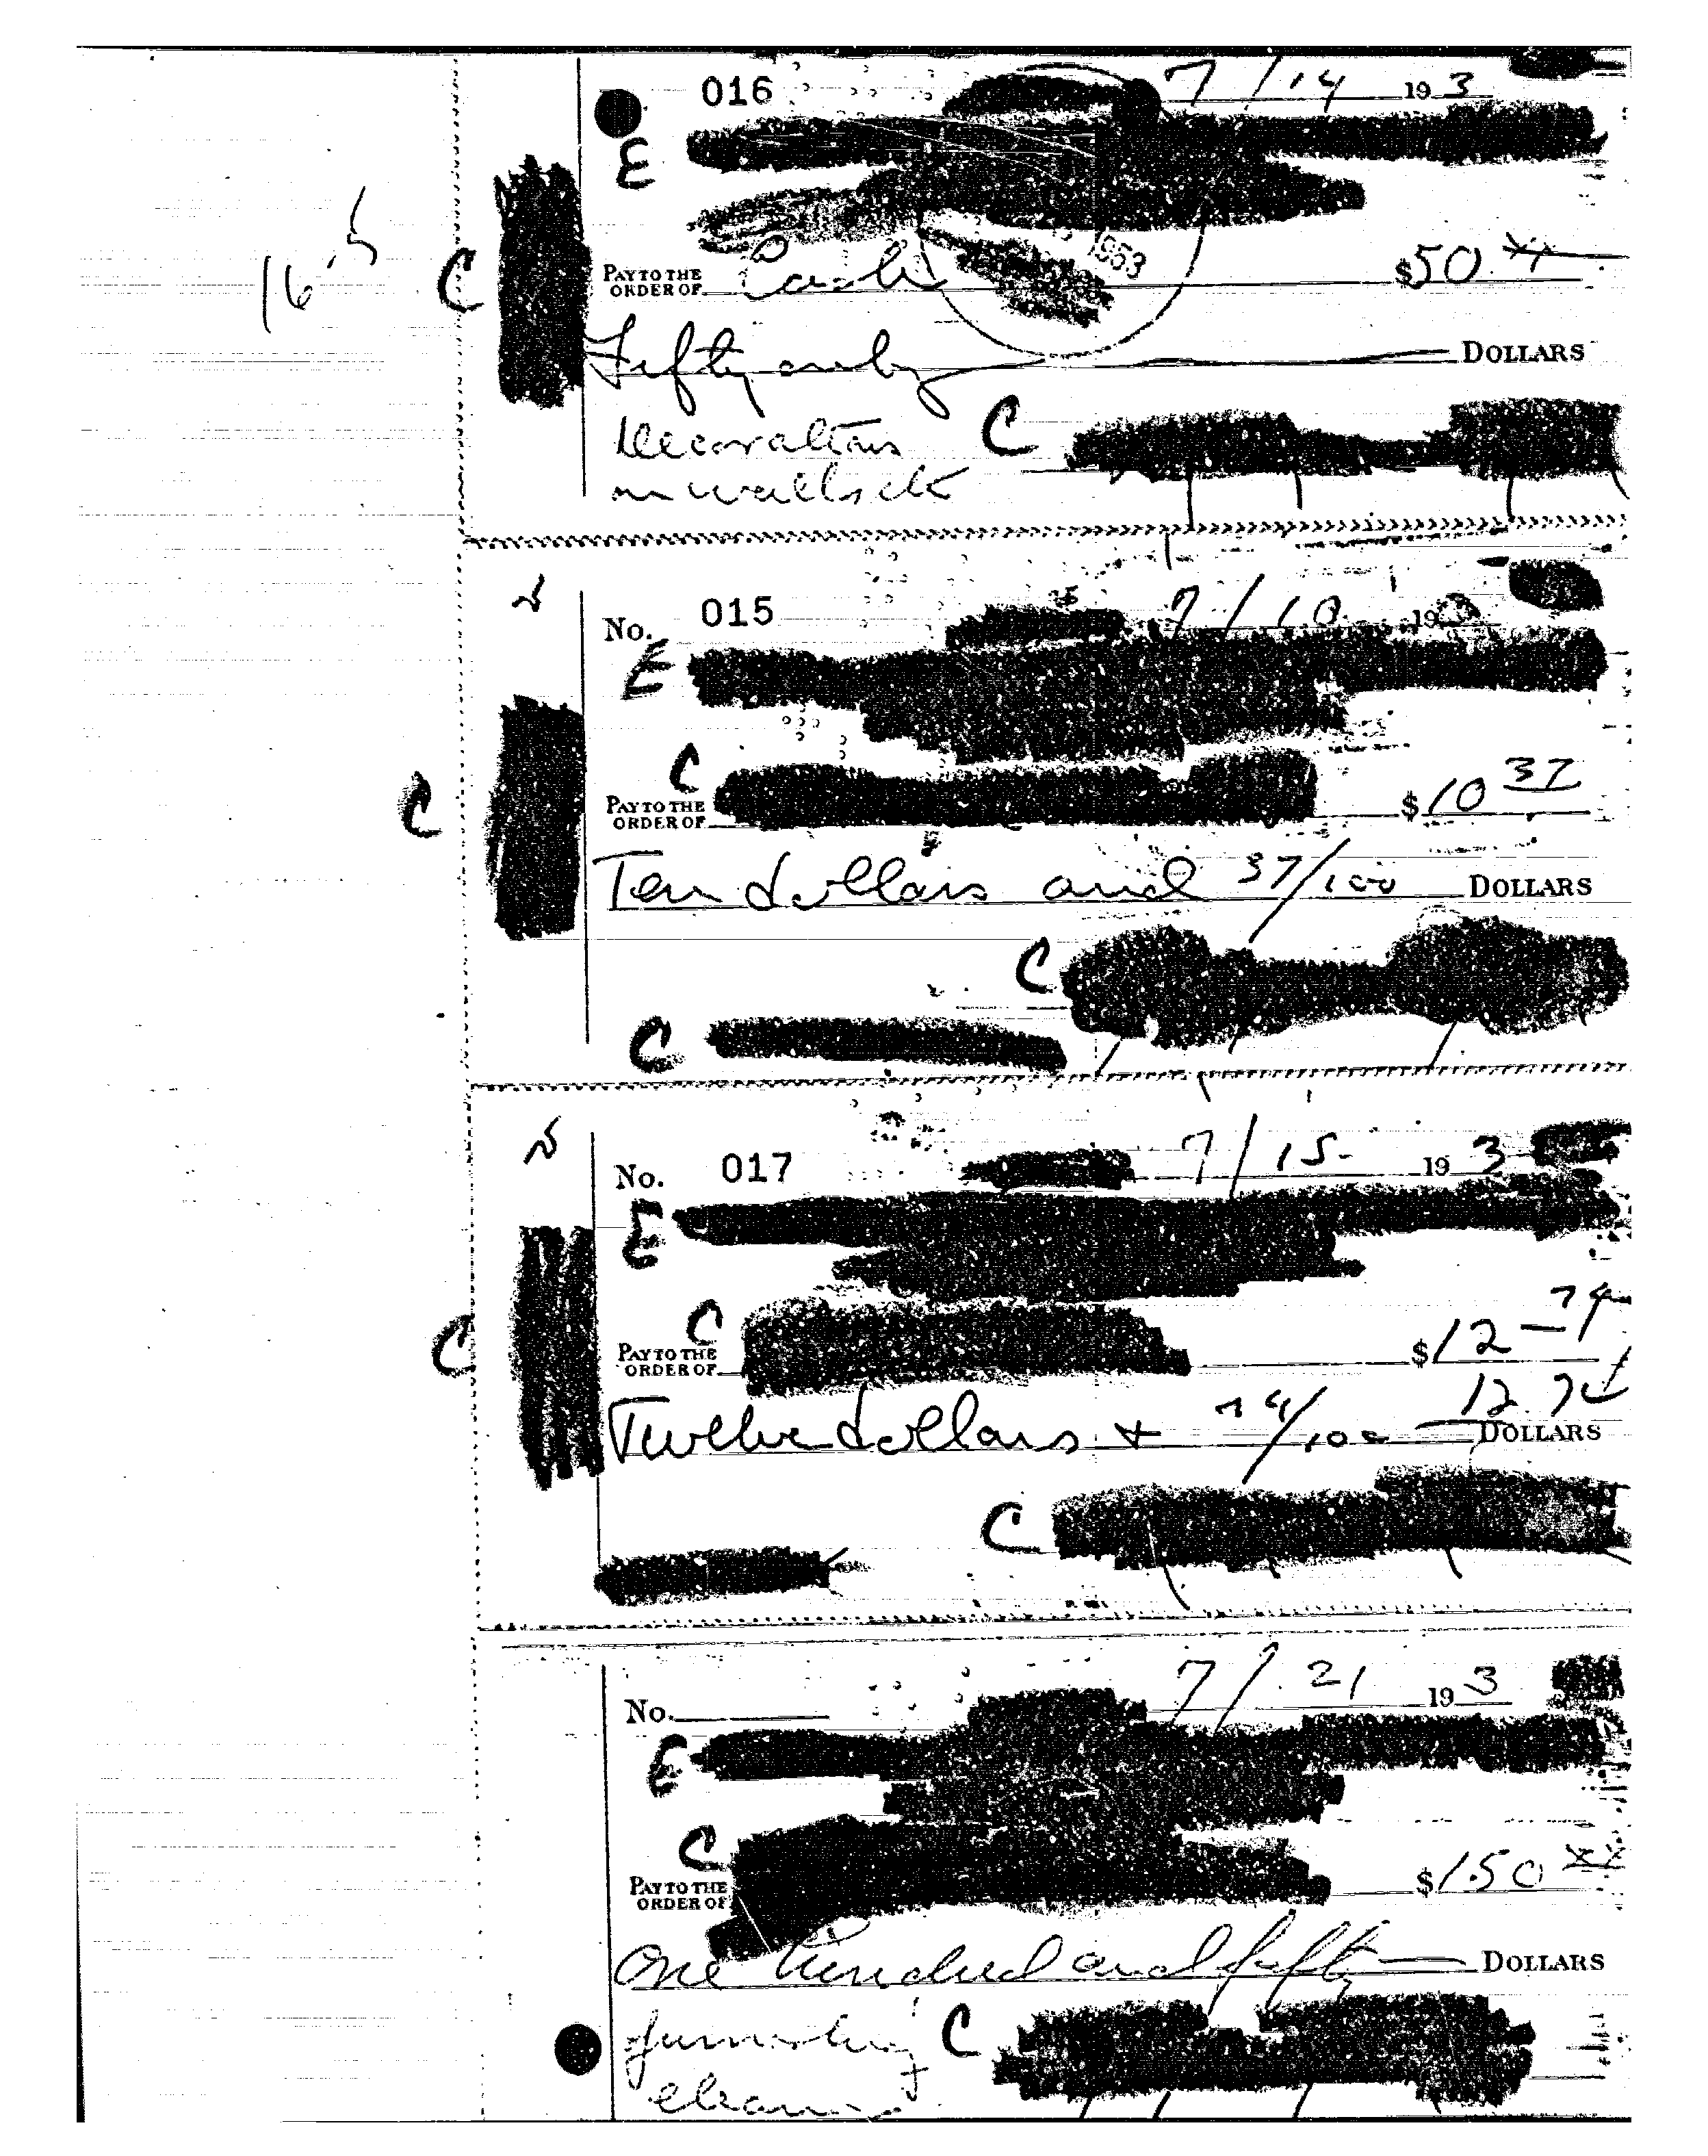 16.5
016 7/14 19 3
E
1953
C PAY TO THE ORDER OF Cash $50 xx
Fifty only DOLLARS
Decorations C
on walls etc
No. 015 7/10 19
E
C
C PAY TO THE ORDER OF $10 37
Ten dollars and 37/100 DOLLARS
C
C
No. 017 7/15 19 3
E
C
C PAY TO THE ORDER OF $12 74
12.74
Twelve dollars + 74/100 DOLLARS
C
No. 7/21 19 3
E
C
PAY TO THE ORDER OF $150 xx
One hundred and fifty DOLLARS
C